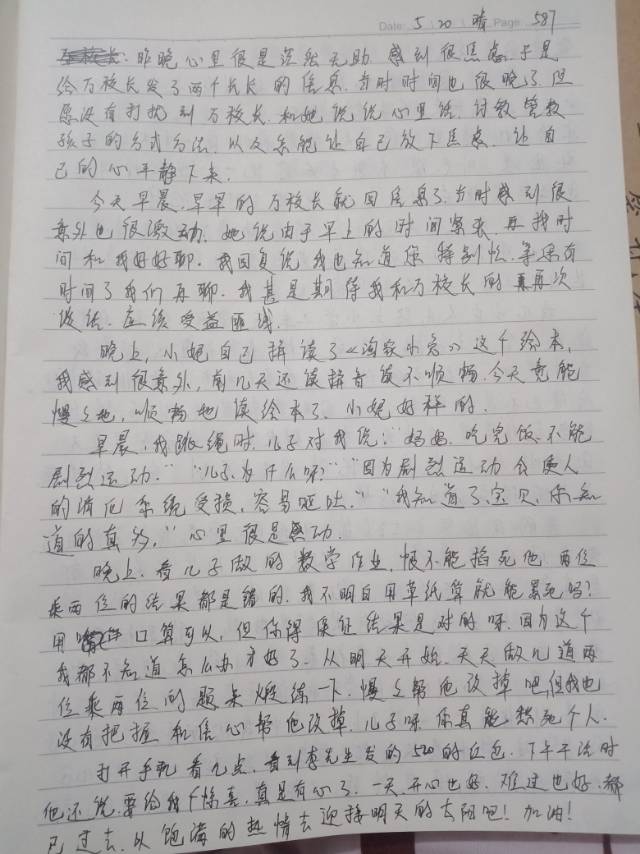 Date: 5 20 晴 Page 587
昨晚心里很是茫然无助.感到很焦虑.于是
给万校长发了两个长长的信息.当时时间也很晚了.但
愿没有打扰到万校长.和她说说心里话.讨教管教
孩子的方式方法.以及怎能让自己放下焦虑.让自
己的心平静下来.
今天早晨.早早的万校长就回信息了.当时感到很
意外也很激动.她说由于早上的时间紧张.再找时
间和我好好聊.我回复说我也知道您特别忙.等您有
时间了我们再聊.我甚是期待我和万校长的再次
谈话.应该受益匪浅.
晚上,小妮自己拼读了《淘家小兔》这个绘本,
我感到很意外,前几天还读拼音读不顺畅.今天竟能
慢慢地,顺畅地读绘本了.小妮好样的.
早晨,我跳绳时.儿子对我说:"妈妈.吃完饭.不能
剧烈运动.""儿子,为什么呀?""因为剧烈运动会使人
的消化系统受损,容易呕吐.""我知道了,宝贝.你知
道的真多,"心里很是感动.
晚上.看儿子做的数学作业.恨不能掐死他.两位
乘两位的结果都是错的.我不明白用草纸算就能累死吗?
用口算可以,但你得保证结果是对的呀.因为这个
我都不知道怎么办才好了.从明天开始.天天做几道两
位乘两位的题来煅练一下.慢慢帮他改掉吧,但我也
没有把握和信心帮他改掉.儿子呀你真能愁死个人.
打开手机看几点.看到李先生发的520的红包.下午干活时
他还说.要给我个惊喜,真是有心了.一天开心也好.难过也好.都
已过去.以饱满的热情去迎接明天的太阳吧!加油!